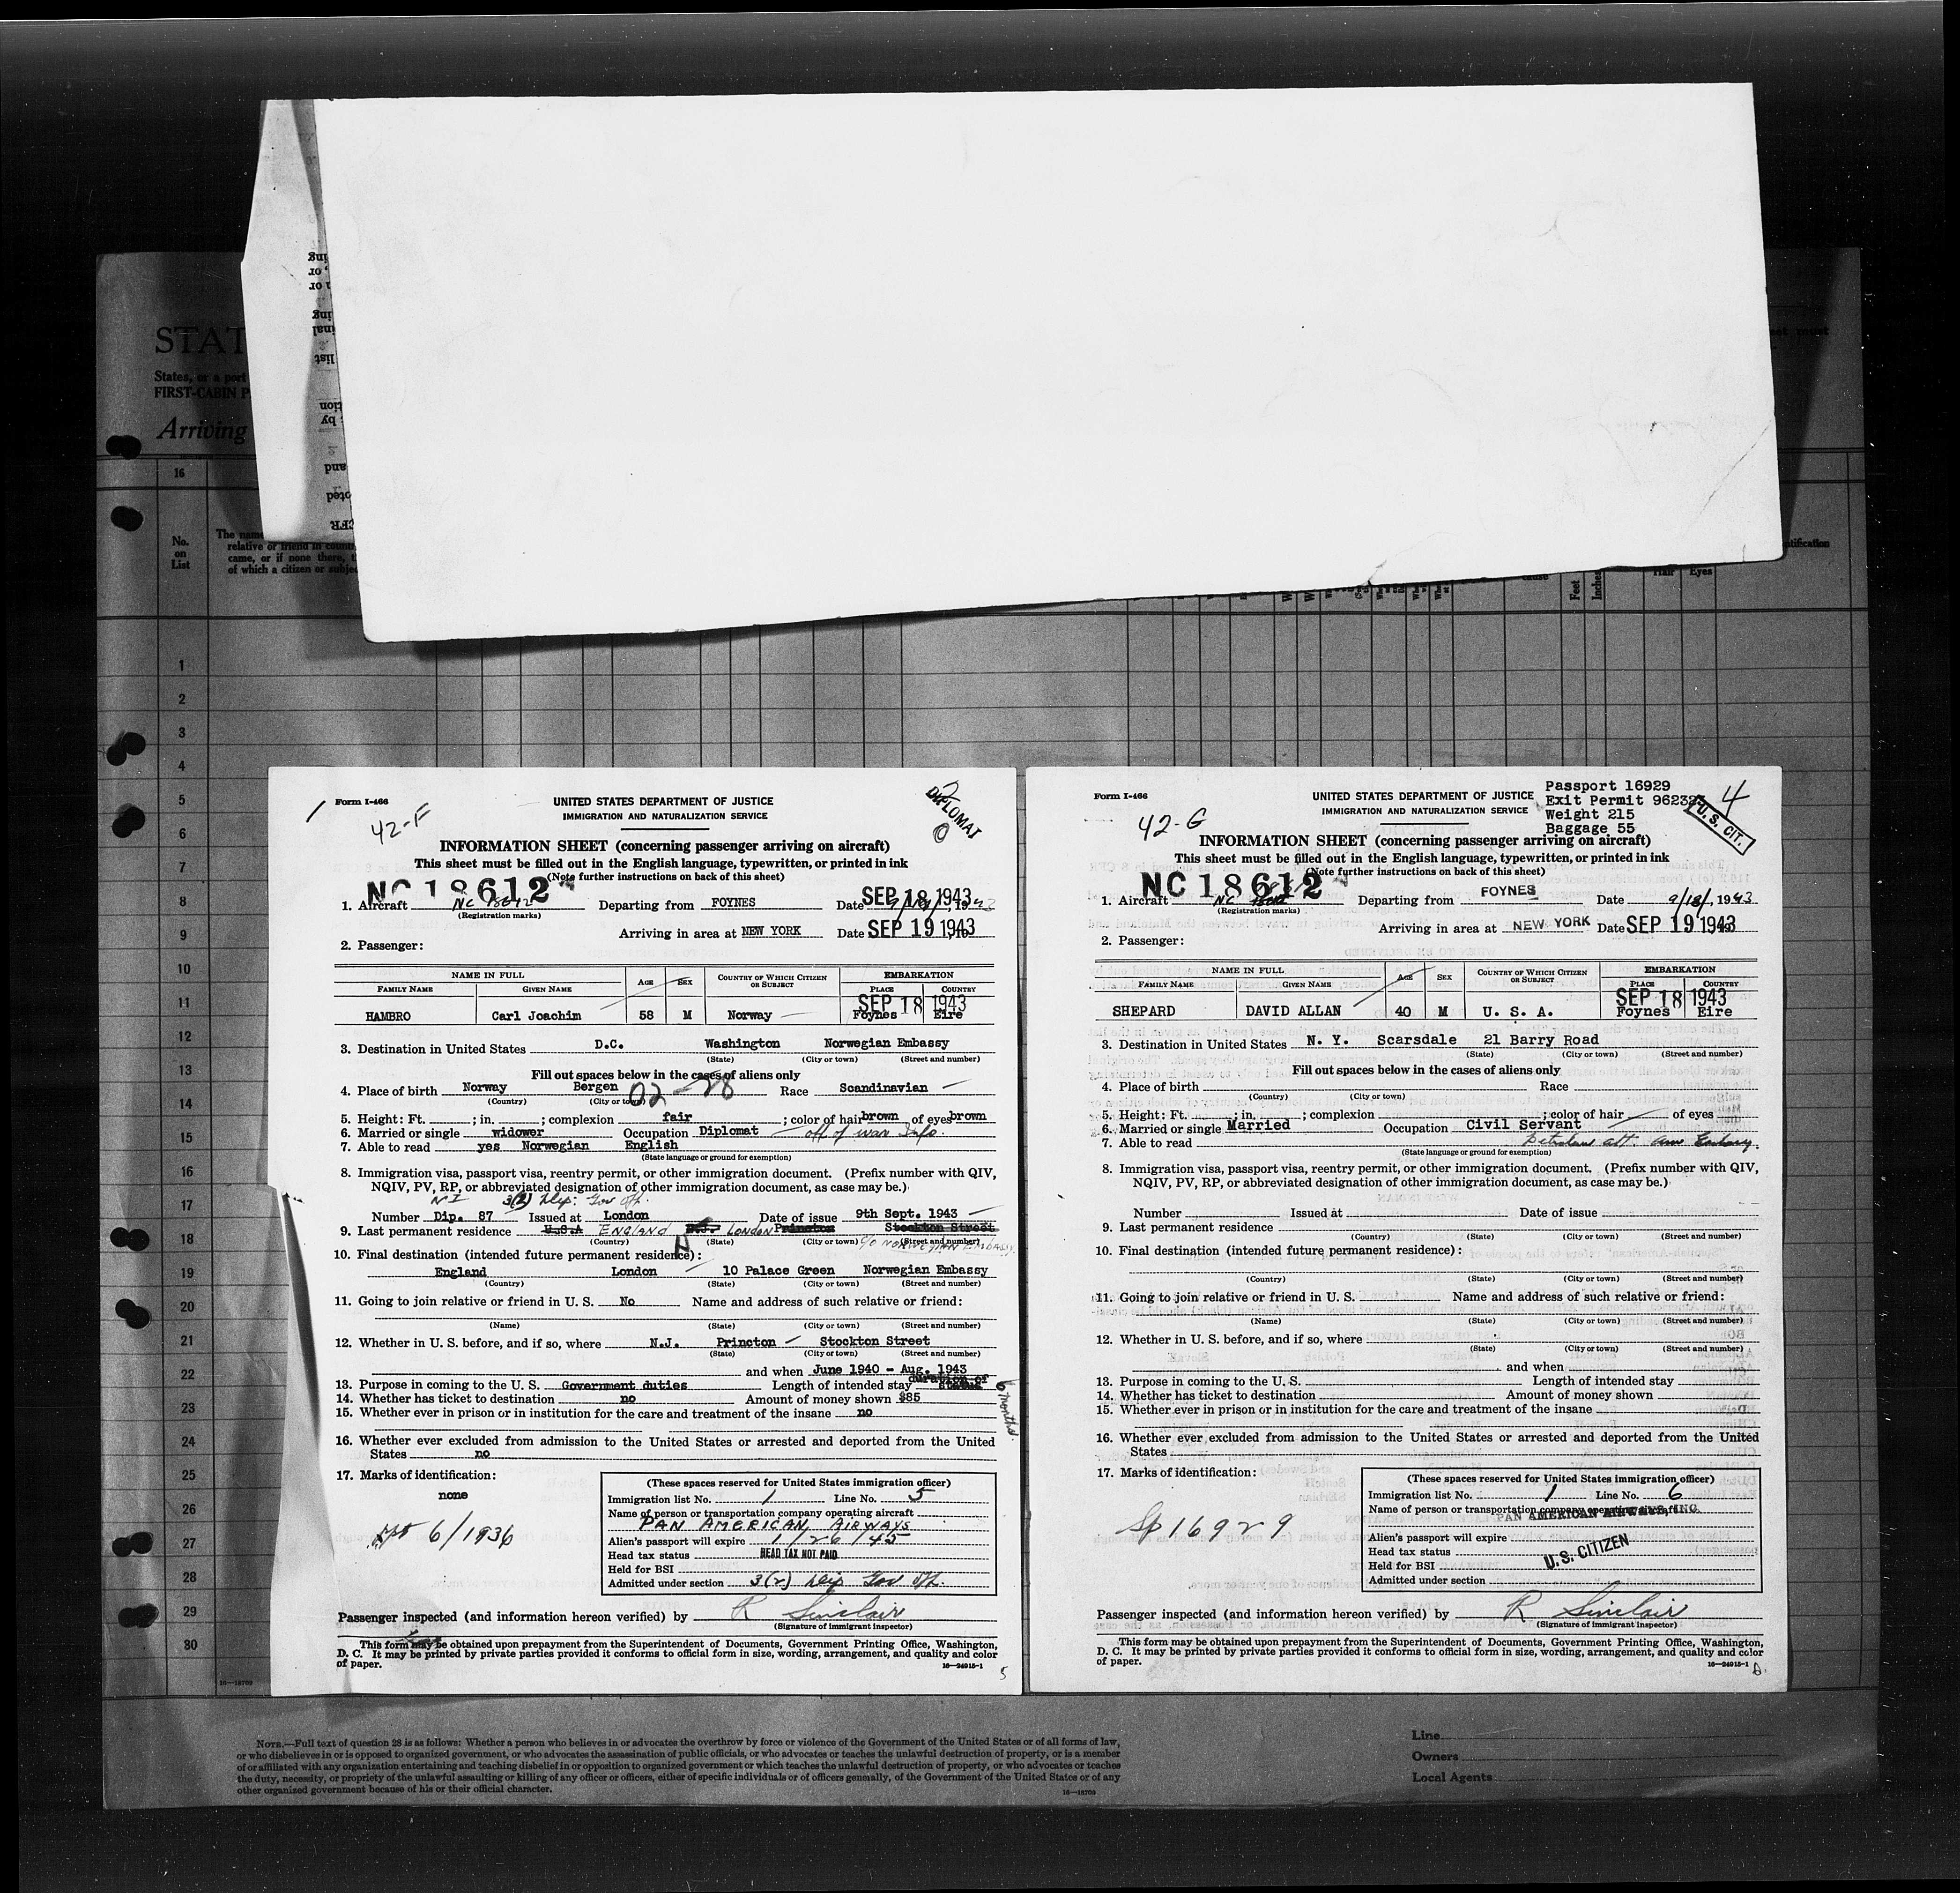 STAT
States, or a port
FIRST-CABIN P
Arriving
16
No.
on
List
The name
relative or friend in count
came, or if none there, t
of which a citizen or subje
Feet
Inches
Hair
Eyes
1
2
3
4
5
6
7
8
9
10
11
12
13
14
15
16
17
18
19
20
21
22
23
24
25
26
27
28
29
30
Form I-466
42-F
UNITED STATES DEPARTMENT OF JUSTICE
IMMIGRATION AND NATURALIZATION SERVICE
2
DIPLOMAT
INFORMATION SHEET (concerning passenger arriving on aircraft)
This sheet must be filled out in the English language, typewritten, or printed in ink
(Note further instructions on back of this sheet)
NC 18612
1. Aircraft NC 18612 Departing from FOYNES Date SEP 18 1943
(Registration marks)
Arriving in area at NEW YORK Date SEP 19 1943
2. Passenger:
NAME IN FULL AGE SEX COUNTRY OF WHICH CITIZEN OR SUBJECT EMBARKATION
FAMILY NAME GIVEN NAME PLACE COUNTRY
SEP 18 1943
HAMBRO Carl Joachim 58 M Norway Foynes Eire
3. Destination in United States D.C. Washington Norwegian Embassy
(State) (City or town) (Street and number)
Fill out spaces below in the cases of aliens only
4. Place of birth Norway Bergen 02-28 Race Scandinavian
(Country) (City or town)
5. Height: Ft. ; in. ; complexion fair ; color of hair brown of eyes brown
6. Married or single widower Occupation Diplomat off of war Info.
7. Able to read yes Norwegian English
(State language or ground for exemption)
8. Immigration visa, passport visa, reentry permit, or other immigration document. (Prefix number with QIV,
NQIV, PV, RP, or abbreviated designation of other immigration document, as case may be.)
3(2) Dip. Gov Off.
Number Dip. 87 Issued at London Date of issue 9th Sept. 1943
9. Last permanent residence U.S.A ENGLAND N.J. LONDON Princton Stockton Street
(Country) (State) (City or town) (Street and number)
c/o NORWEGIAN EMBASSY
10. Final destination (intended future permanent residence):
England London 10 Palace Green Norwegian Embassy
(Country) (State) (City or town) (Street and number)
11. Going to join relative or friend in U. S. No Name and address of such relative or friend:
(Name) (State) (City or town) (Street and number)
12. Whether in U. S. before, and if so, where N.J. Princton Stockton Street
(State) (City or town) (Street and number)
and when June 1940 - Aug. 1943
13. Purpose in coming to the U. S. Government duties Length of intended stay duration of status 6 months
14. Whether has ticket to destination no Amount of money shown $85
15. Whether ever in prison or in institution for the care and treatment of the insane no
16. Whether ever excluded from admission to the United States or arrested and deported from the United
States no
17. Marks of identification:
none
6/1936
(These spaces reserved for United States immigration officer)
Immigration list No. 1 Line No. 5
Name of person or transportation company operating aircraft
PAN AMERICAN AIRWAYS
Alien's passport will expire 1/26/45
Head tax status HEAD TAX NOT PAID
Held for BSI
Admitted under section 3(2) Dip Gov Off.
Passenger inspected (and information hereon verified) by R Sinclair
(Signature of immigrant inspector)
This form may be obtained upon prepayment from the Superintendent of Documents, Government Printing Office, Washington,
D. C. It may be printed by private parties provided it conforms to official form in size, wording, arrangement, and quality and color
of paper.
16—24915-1
5
Form I-466
42-G
UNITED STATES DEPARTMENT OF JUSTICE
IMMIGRATION AND NATURALIZATION SERVICE
Passport 16929
Exit Permit 96232
Weight 215
Baggage 55
4
U.S. CIT.
INFORMATION SHEET (concerning passenger arriving on aircraft)
This sheet must be filled out in the English language, typewritten, or printed in ink
(Note further instructions on back of this sheet)
NC 18612
1. Aircraft NC Departing from FOYNES Date 9/18/, 1943
(Registration marks)
Arriving in area at NEW YORK Date SEP 19 1943
2. Passenger:
NAME IN FULL AGE SEX COUNTRY OF WHICH CITIZEN OR SUBJECT EMBARKATION
FAMILY NAME GIVEN NAME PLACE COUNTRY
SEP 18 1943
SHEPARD DAVID ALLAN 40 M U. S. A. Foynes Eire
3. Destination in United States N. Y. Scarsdale 21 Barry Road
(State) (City or town) (Street and number)
Fill out spaces below in the cases of aliens only
4. Place of birth Race
(Country) (City or town)
5. Height: Ft. ; in. ; complexion ; color of hair of eyes
6. Married or single Married Occupation Civil Servant
7. Able to read Petroleum att. Am Embassy.
(State language or ground for exemption)
8. Immigration visa, passport visa, reentry permit, or other immigration document. (Prefix number with QIV,
NQIV, PV, RP, or abbreviated designation of other immigration document, as case may be.)
Number Issued at Date of issue
9. Last permanent residence
(Country) (State) (City or town) (Street and number)
10. Final destination (intended future permanent residence):
(Country) (State) (City or town) (Street and number)
11. Going to join relative or friend in U. S. Name and address of such relative or friend:
(Name) (State) (City or town) (Street and number)
12. Whether in U. S. before, and if so, where
(State) (City or town) (Street and number)
and when
13. Purpose in coming to the U. S. Length of intended stay
14. Whether has ticket to destination Amount of money shown
15. Whether ever in prison or in institution for the care and treatment of the insane
16. Whether ever excluded from admission to the United States or arrested and deported from the United
States
17. Marks of identification:
Sp 16929
(These spaces reserved for United States immigration officer)
Immigration list No. 1 Line No. 6
Name of person or transportation company operating aircraft
PAN AMERICAN AIRWAYS, INC.
Alien's passport will expire
Head tax status U.S. CITIZEN
Held for BSI
Admitted under section
Passenger inspected (and information hereon verified) by R Sinclair
(Signature of immigrant inspector)
This form may be obtained upon prepayment from the Superintendent of Documents, Government Printing Office, Washington,
D. C. It may be printed by private parties provided it conforms to official form in size, wording, arrangement, and quality and color
of paper.
16—24915-1
16—18709
NOTE.—Full text of question 28 is as follows: Whether a person who believes in or advocates the overthrow by force or violence of the Government of the United States or of all forms of law,
or who disbelieves in or is opposed to organized government, or who advocates the assassination of public officials, or who advocates or teaches the unlawful destruction of property, or is a member
of or affiliated with any organization entertaining and teaching disbelief in or opposition to organized government or which teaches the unlawful destruction of property, or who advocates or teaches
the duty, necessity, or propriety of the unlawful assaulting or killing of any officer or officers, either of specific individuals or of officers generally, of the Government of the United States or of any
other organized government because of his or their official character.
16—18709
Line
Owners
Local Agents